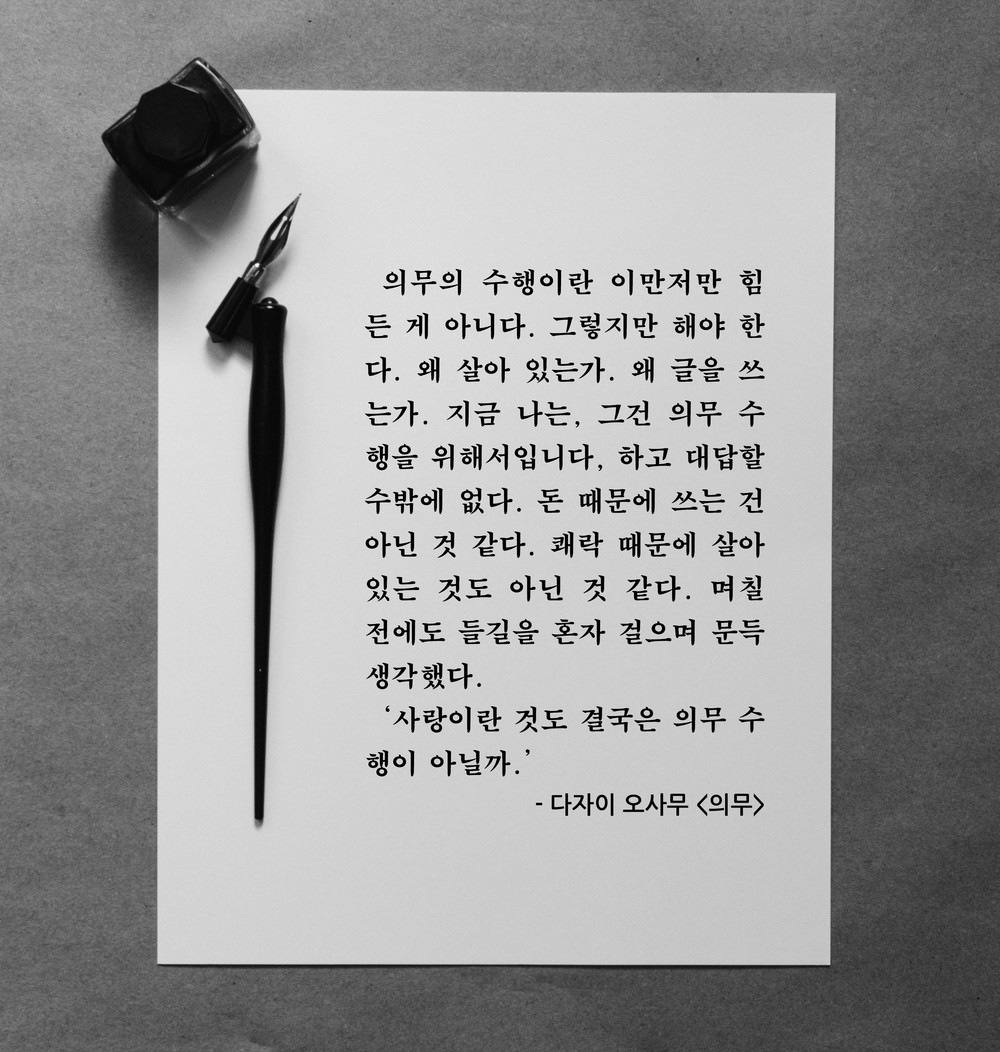 의무의 수행이란 이만저만 힘
든 게 아니다. 그렇지만 해야 한
다. 왜 살아 있는가. 왜 글을 쓰
는가. 지금 나는, 그건 의무 수
행을 위해서입니다, 하고 대답할
수밖에 없다. 돈 때문에 쓰는 건
아닌 것 같다. 쾌락 때문에 살아
있는 것도 아닌 것 같다. 며칠
전에도 들길을 혼자 걸으며 문득
생각했다.
‘사랑이란 것도 결국은 의무 수
행이 아닐까.’
- 다자이 오사무 <의무>